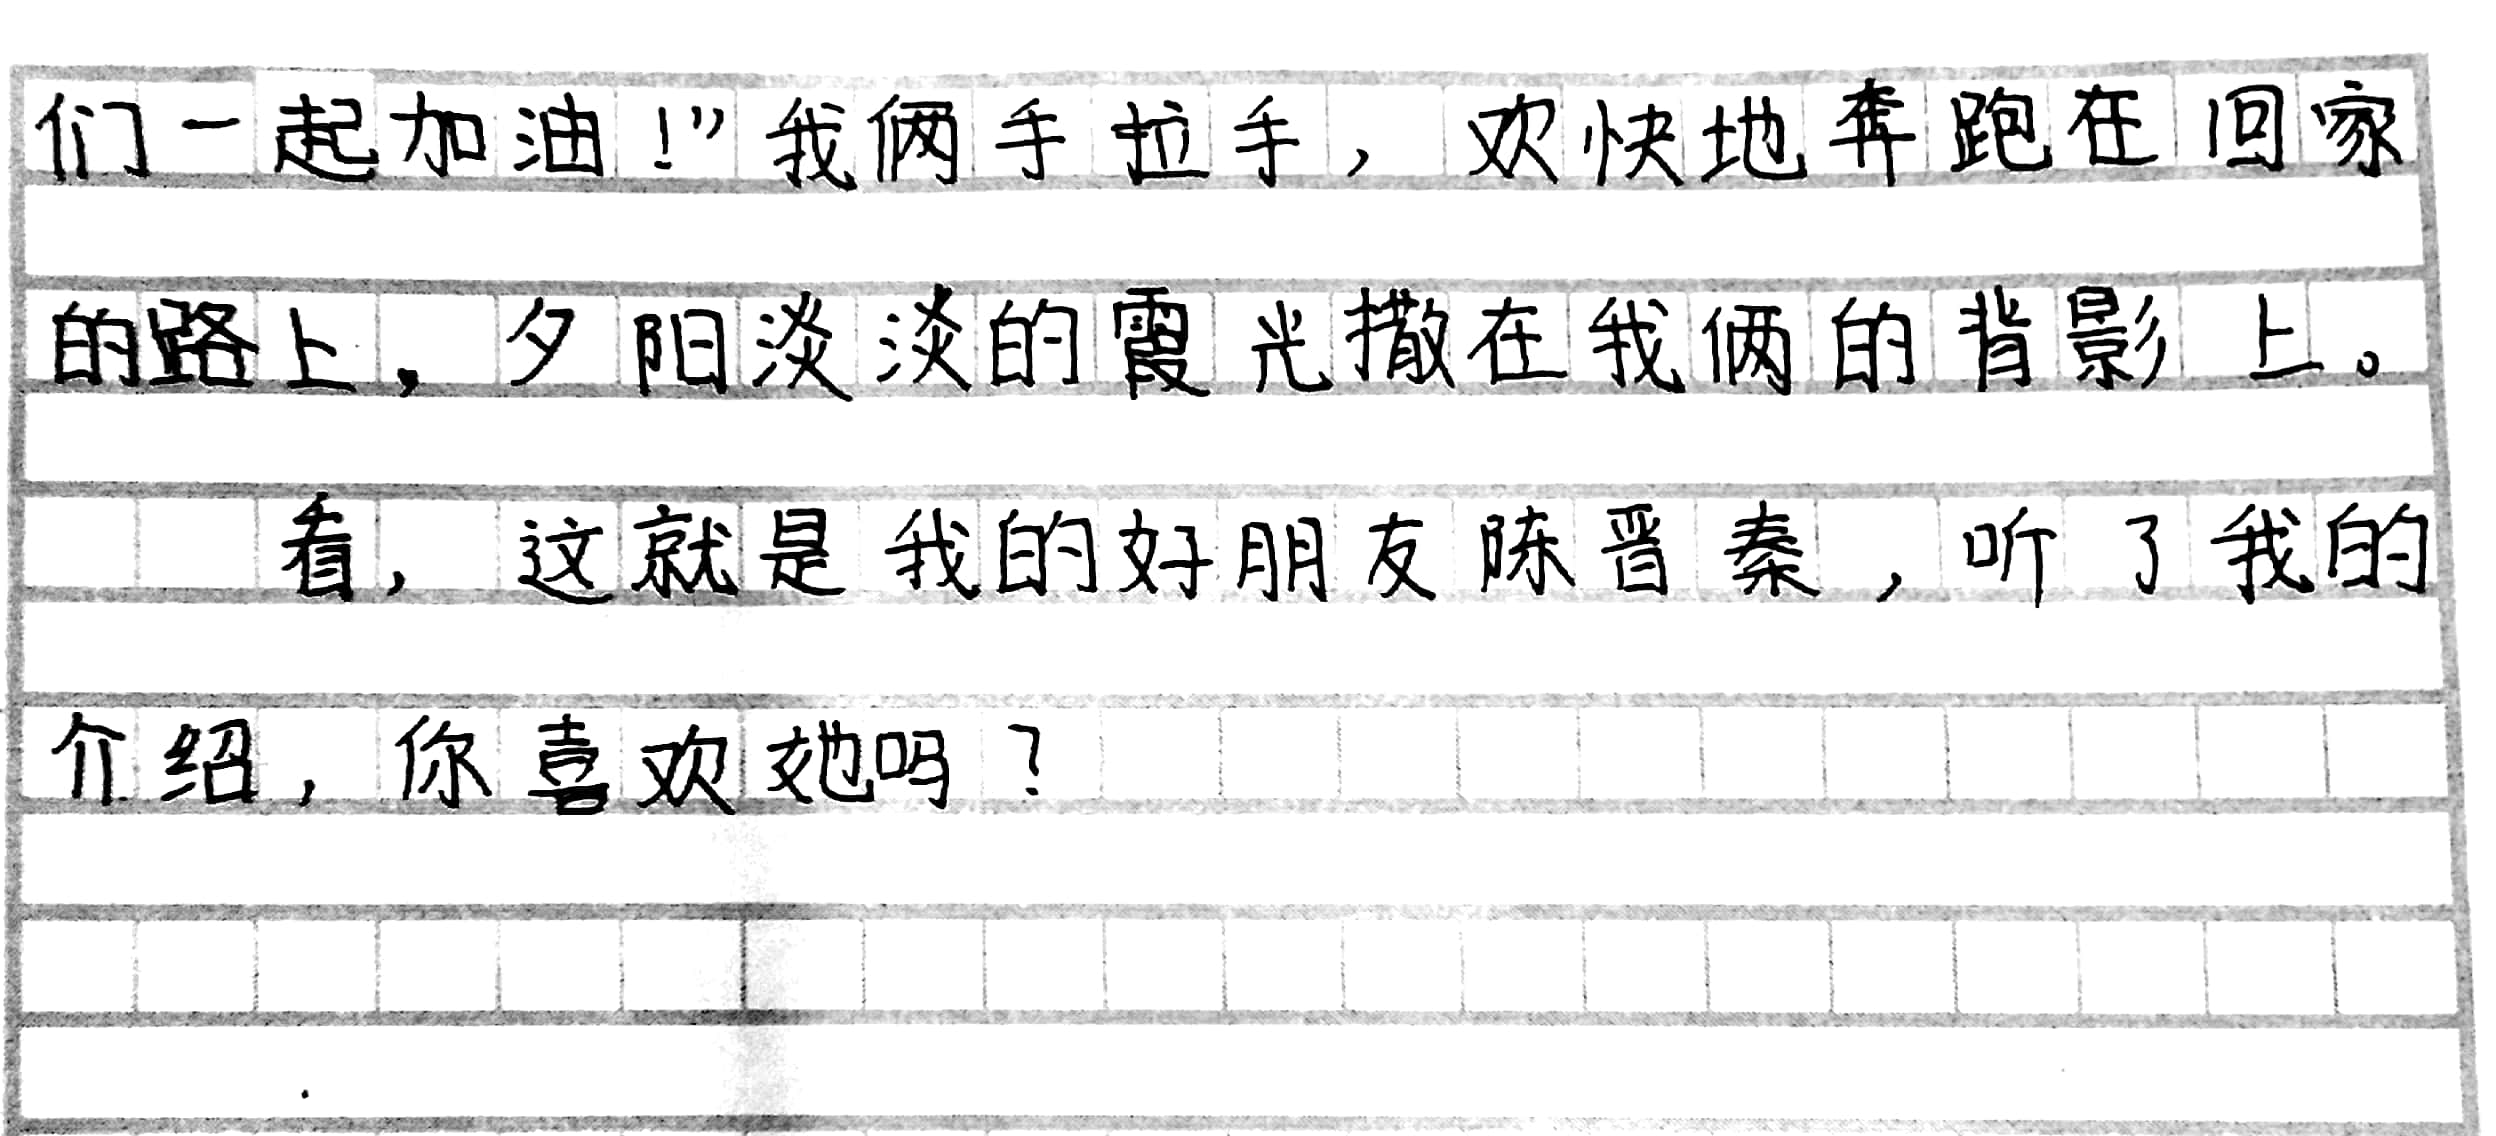 们一起加油！”我俩手拉手，欢快地奔跑在回家
的路上，夕阳淡淡的霞光撒在我俩的背影上。
看，这就是我的好朋友陈晋秦，听了我的
介绍，你喜欢她吗？